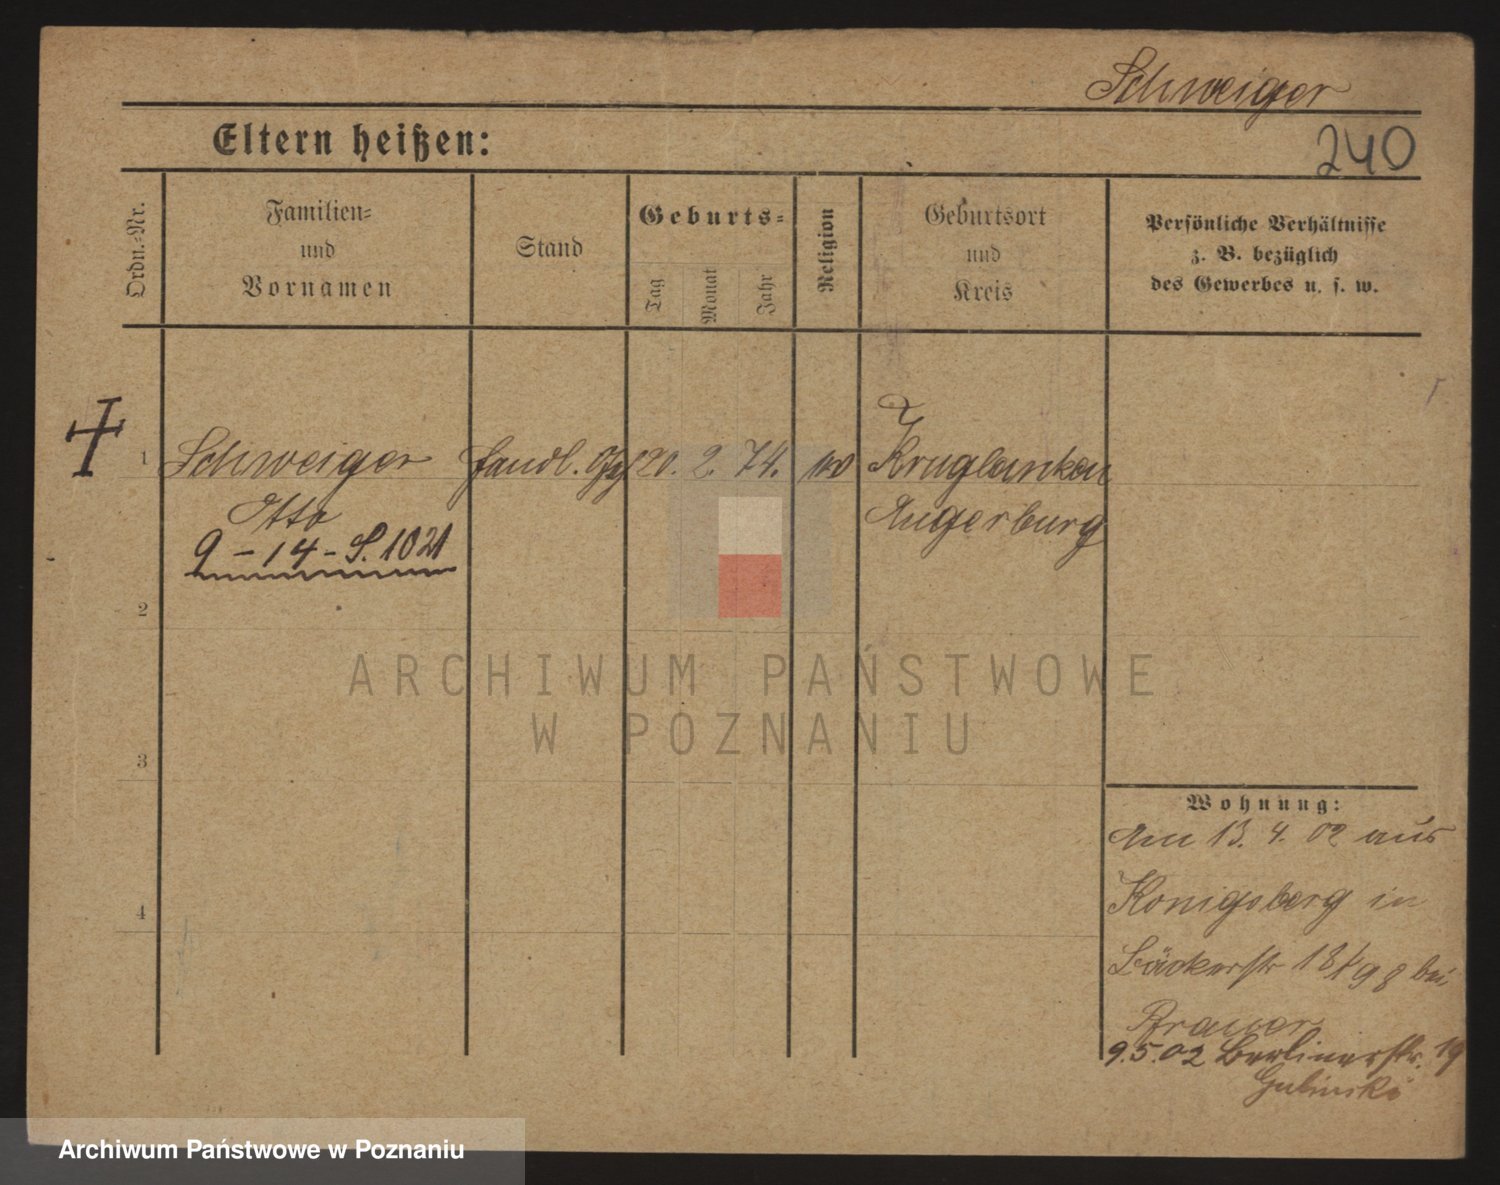 Schweiger
240
Eltern heißen:
Ordn.-Nr.
Familien-
und
Vornamen
Stand
Geburts-
Tag
Monat
Jahr
Religion
Geburtsort
und
Kreis
Persönliche Verhältnisse
z. B. bezüglich
des Gewerbes u. s. w.
1 Schweiger Handl. Gh 20. 2. 74. Kruglanken
Otto Angerburg
9 - 14 - S. 1021
2
3
4
Wohnung:
Am 13. 4. 02 aus
Königsberg in
Bäckerstr 18 bei
Brauer
9.5.02 Berlinerstr. 19
Gubinski
ARCHIWUM PAŃSTWOWE
W POZNANIU
Archiwum Państwowe w Poznaniu